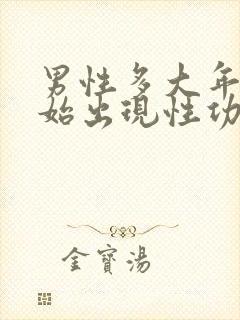 男性多大年
始出现性功
金寳湯